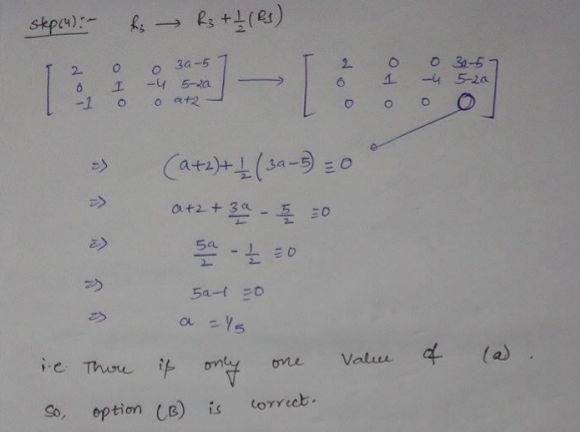 step(4):- R₃ → R₃ + 1/2 (R1)
[ 2 0 0 3a-5 ] → [ 2 0 0 3a-5 ]
[ 0 1 -4 5-2a ] [ 0 1 -4 5-2a ]
[ -1 0 0 a+2 ] [ 0 0 0 0 ]
=> (a+2)+1/2(3a-5) = 0
=> a+2 + 3a/2 - 5/2 = 0
=> 5a/2 - 1/2 = 0
=> 5a-1 = 0
=> a = 1/5
i.e There is only one value of (a).
So, option (B) is correct.